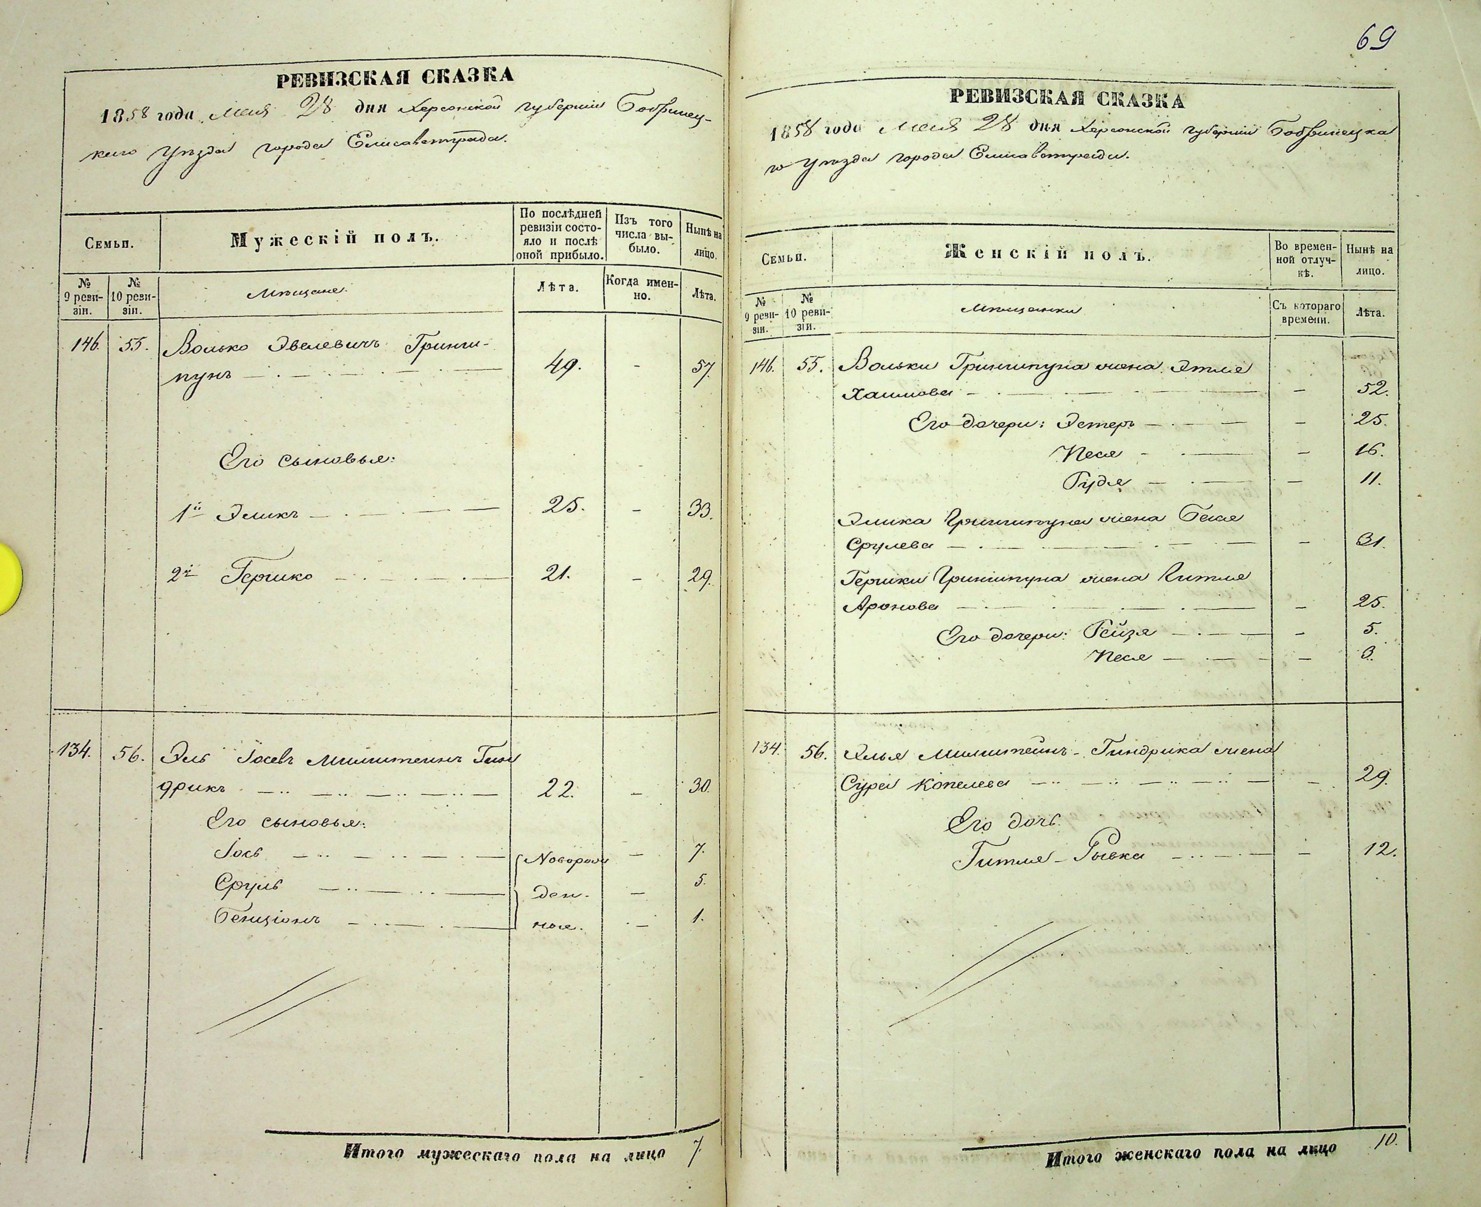 69
РЕВИЗСКАЯ СКАЗКА
1858 года Мая 28 дня Херсонской губерніи Бобринец-
каго Уѣзда города Елисаветграда.
Семьи.
Мужескій полъ.
По послѣдней ревизіи состо-
яло и послѣ оной прибыло.
Изъ того числа вы-
было.
Нынѣ на лицо.
№ 9 реви-
зіи.
№ 10 реви-
зіи.
Мѣщане.
Лѣта.
Когда имен-
но.
Лѣта.
146. 55. Волько Эвелевичъ Гринши-
пунъ — 49. - 57.
Его сыновья:
1й Эликъ — 25. - 33.
2й Гершко — 21. - 29.
134. 56. Эль Іосевъ Мильштейнъ Гин
дрикъ — 22. - 30.
Его сыновья:
Іось — Поворож - 7.
Сруль — ден. - 5.
Бенціонъ — ные. - 1.
Итого мужескаго пола на лицо 7.
РЕВИЗСКАЯ СКАЗКА
1858 года Мая 28 дня Херсонской губерніи Бобринецка
го Уѣзда города Елисаветграда.
Семьи.
Женскій полъ.
Во времен-
ной отлуч-
кѣ.
Нынѣ на лицо.
№ 9 реви-
зіи.
№ 10 реви-
зіи.
Мѣщанки
Съ котораго времени.
Лѣта.
146. 55. Вольки Гриншпуна жена Этля
Хаимова — - 52.
Его дочери: Эстеръ — - 25.
Песя — - 16.
Гудя — - 11.
Элика Гриншпуна жена Бася
Срулева — - 31.
Гершки Гриншпуна жена Гитля
Аронова — - 25.
Его дочери: Рейзя — - 5.
Песя — - 3.
134. 56. Элья Мильштейнъ-Гиндрика жена
Сура Копелева — - 29.
Его дочь
Гитля-Рывка — - 12.
Итого женскаго пола на лицо 10.